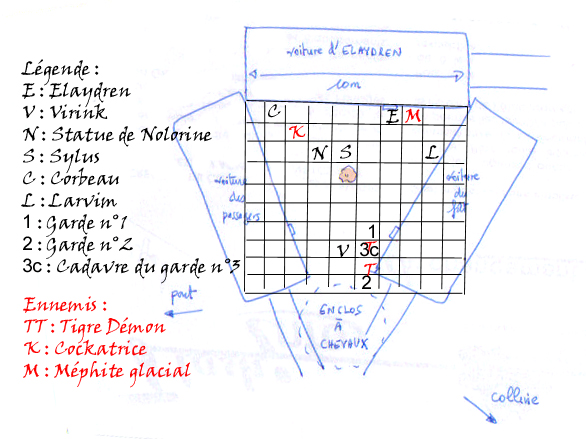 voiture d'ELAYDREN
10m
Légende :
E : Elaydren
V : Virink
N : Statue de Nolorine
S : Sylus
C : Corbeau
L : Larvim
1 : Garde n°1
2 : Garde n°2
3c : Cadavre du garde n°3
Ennemis :
TT : Tigre Démon
K : Cockatrice
M : Méphite glacial
C
E M
K
N S
L
voiture des passagers
voiture du fût
1
V 3c
T
T
2
pont
ENCLOS
À
CHEVAUX
colline